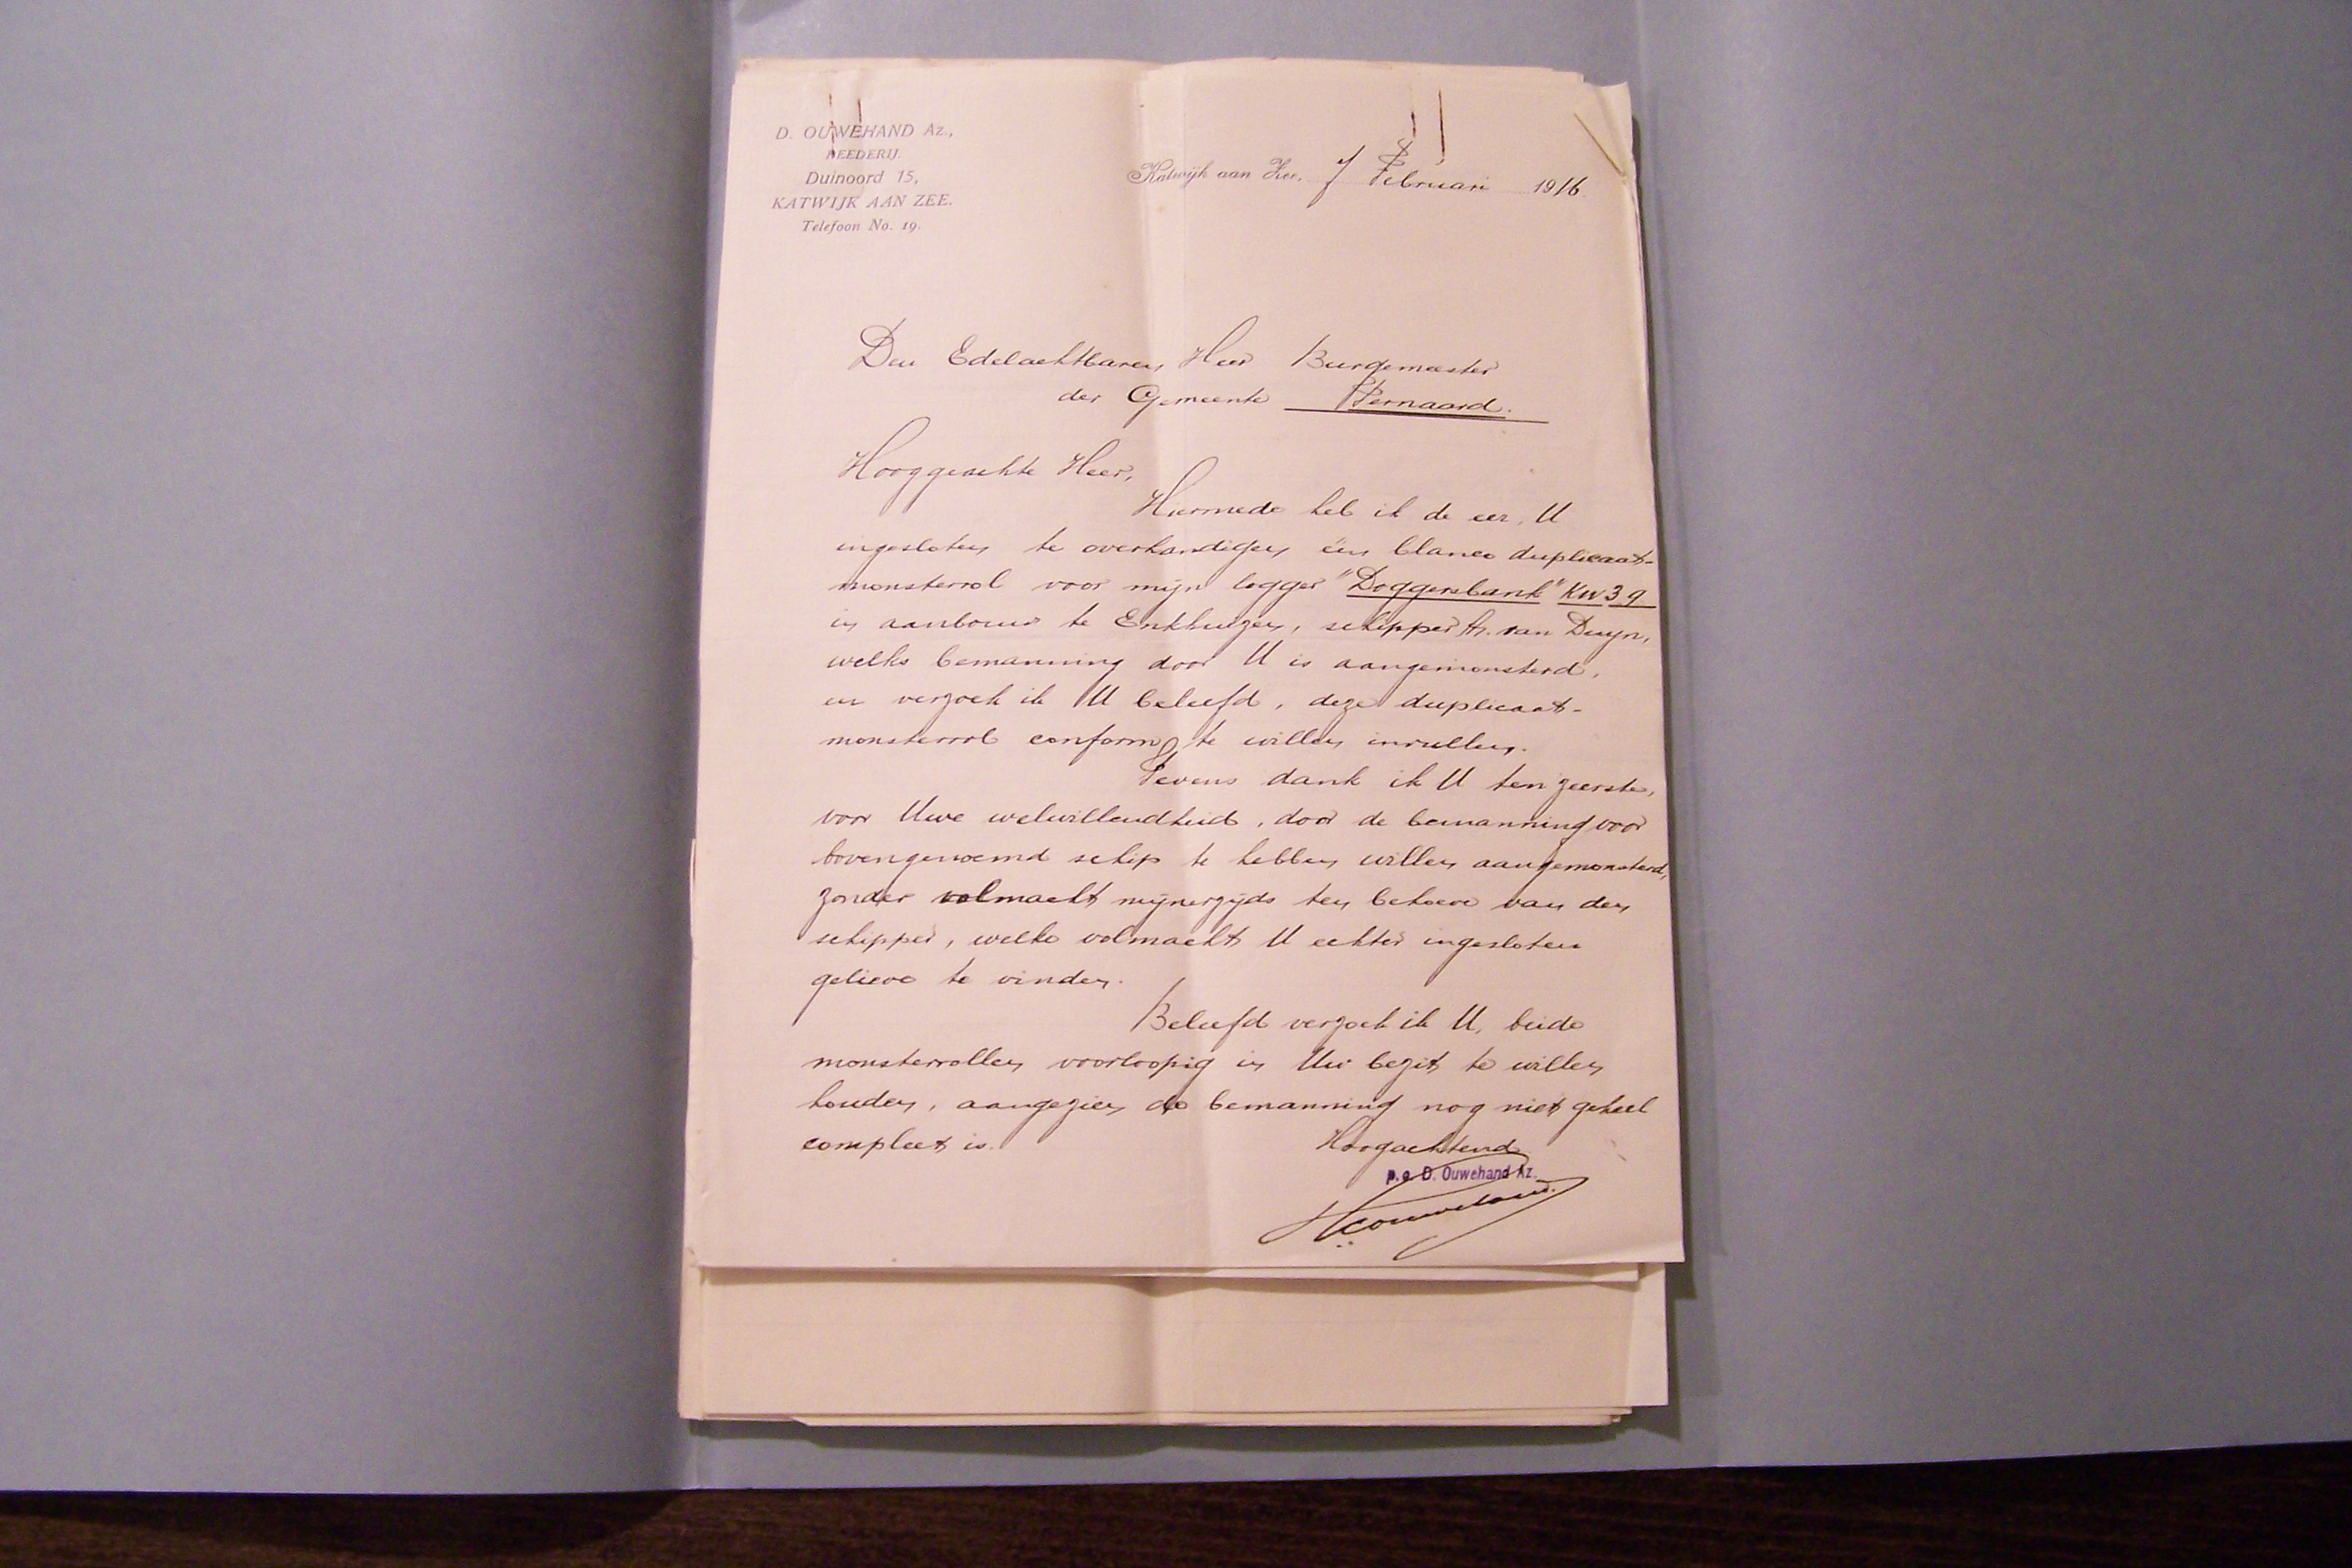 D. OUWEHAND Az.,
REEDERIJ.
Duinoord 15,
KATWIJK AAN ZEE.
Telefoon No. 19.
Katwijk aan Zee, 7 Februari 1916.
Den Edelachtbaren Heer Burgemeester
der Gemeente Ternaard.
Hooggeachte Heer,
Hiermede heb ik de eer, U
ingesloten te overhandigen één blanco duplicaat-
monsterrol voor mijn logger "Doggersbank" KW 39
in aanbouw te Enkhuizen, schipper A. van Duyn,
welks bemanning door U is aangemonsterd,
en verzoek ik U beleefd, deze duplicaat-
monsterrol conform te willen invullen.
Tevens dank ik U ten zeerste,
voor Uwe welwillendheid, door de bemanning voor
bovengenoemd schip te hebben willen aangemonsterd,
zonder volmacht mijnerzijds ten behoeve van den
schipper, welke volmacht U echter ingesloten
gelieve te vinden.
Beleefd verzoek ik U, beide
monsterrollen voorloopig in Uw bezit te willen
houden, aangezien de bemanning nog niet geheel
compleet is.
Hoogachtend
p.o D. Ouwehand Az.